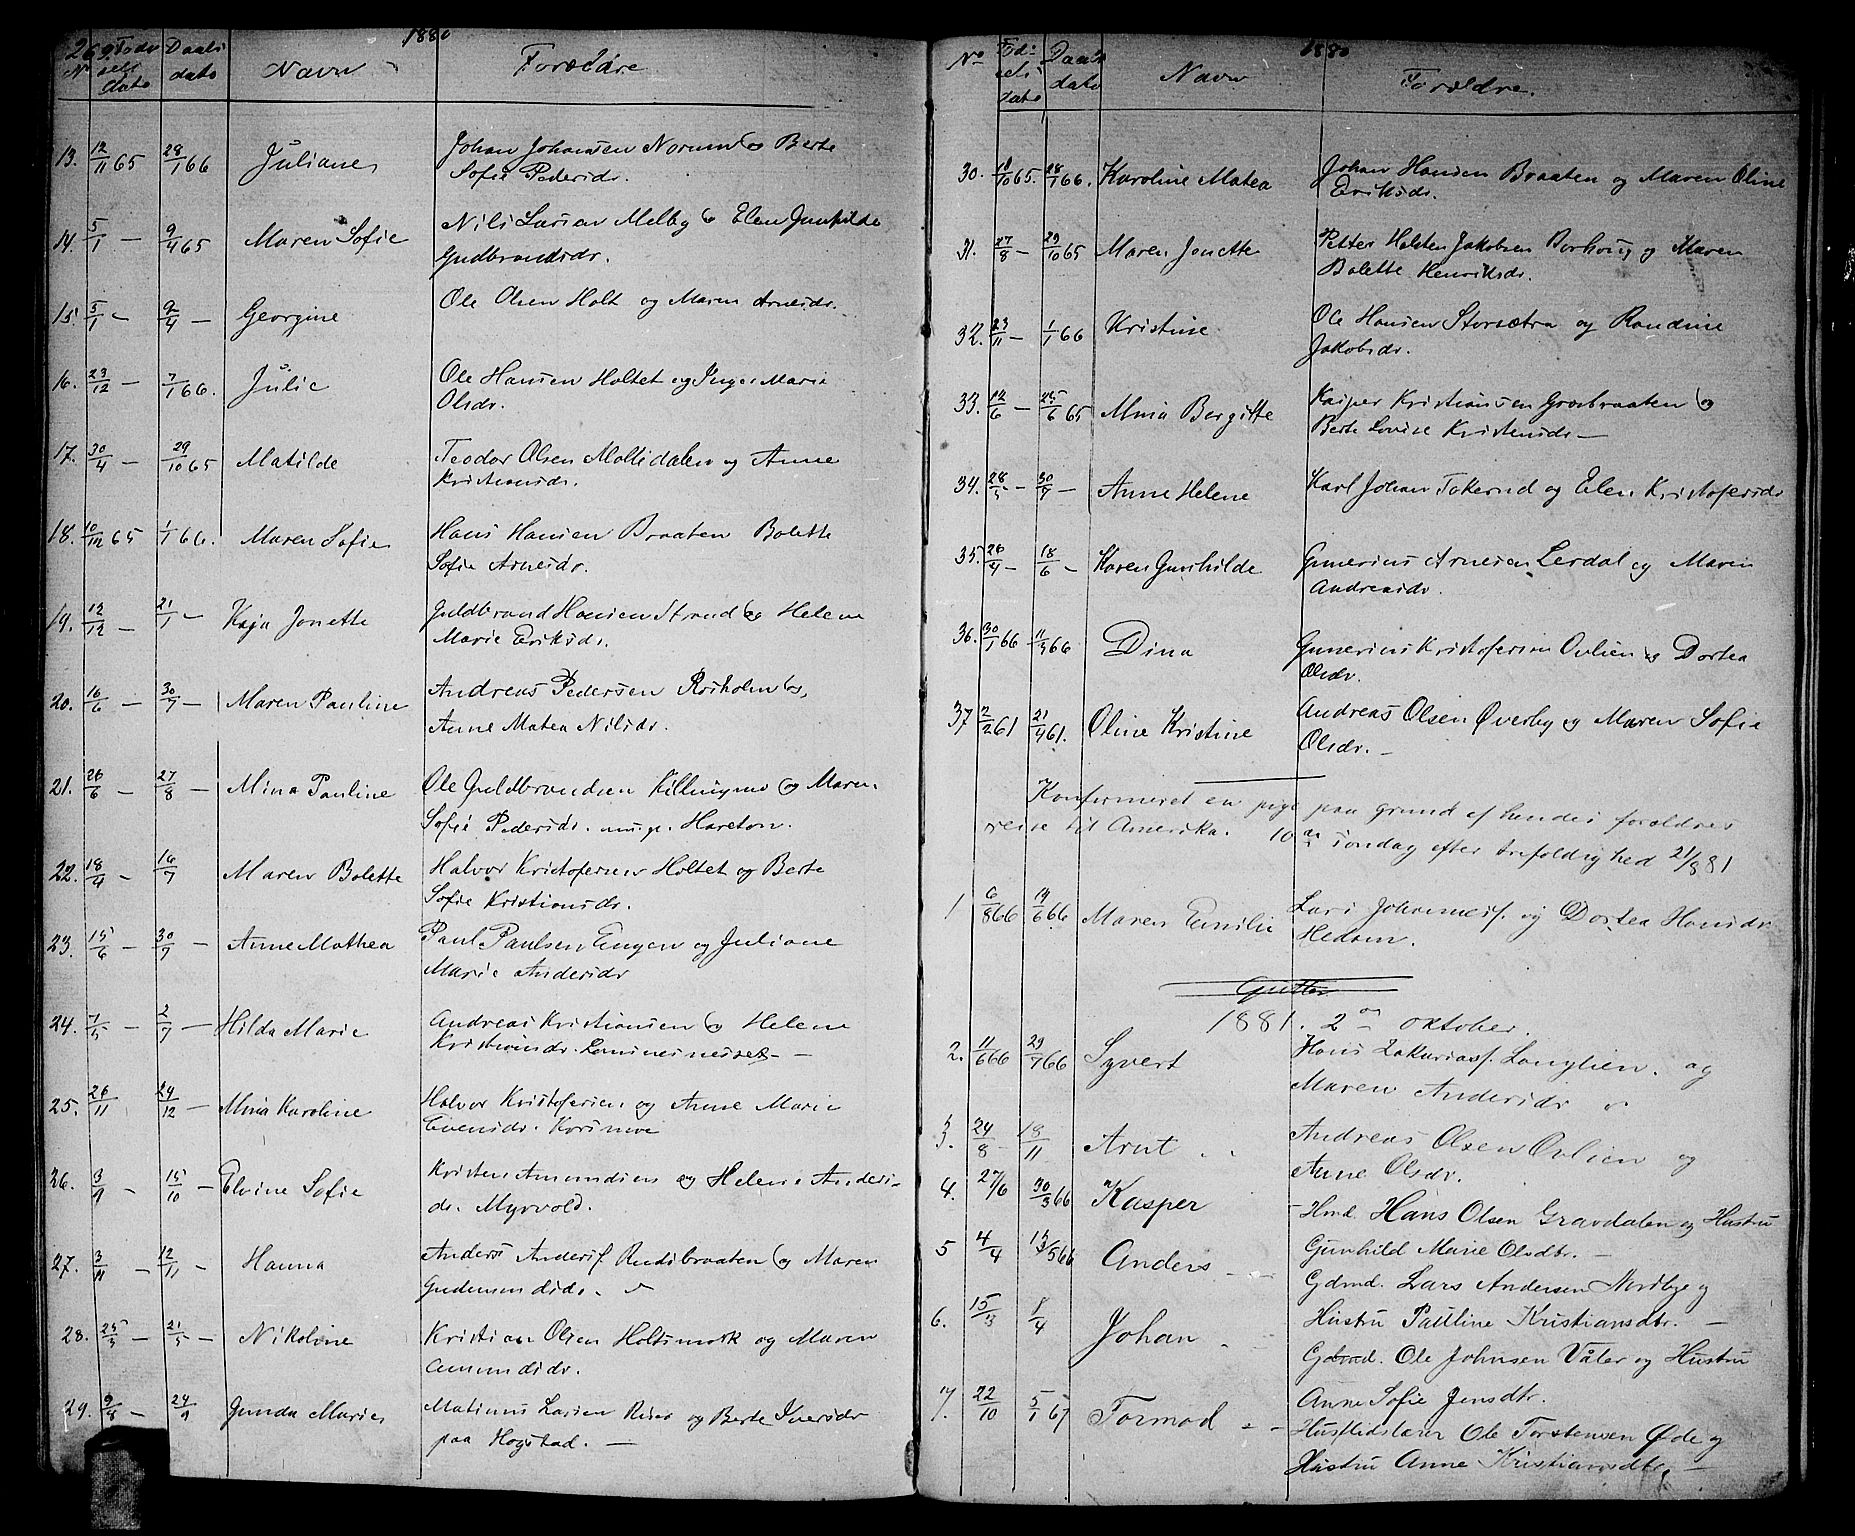 269.
1880
No
Födselsdato
Daabsdato
Navn
Forældre
13. 12/11 65 28/1 66 Juliane Johan Johansen Norum og Berte
Sofie Pedersdr.
14. 5/1 — 9/4 65 Maren Sofie Nils Larsen Melby og Elen Gunhilde
Gudbrandsdr.
15. 5/1 — 9/4 — Georgine Ole Olsen Holt og Maren Arnesdr.
16. 23/12 — 7/1 66. Julie Ole Hansen Holtet og Inger Marie
Olsdr.
17. 30/4 — 29/10 65 Matilde Teodor Olsen Mollidalen og Anne
Kristiansdr.
18. 10/12 65 1/1 66. Maren Sofie Hans Hansen Braaten Bolette
Sofie Arnesdr.
19. 12/12 — 21/1 — Kaja Jonette Guldbrand Hansen Strand og Helene
Marie Eriksdr.
20. 16/6 — 30/7 — Maren Pauline Andreas Pedersen Rosholm og
Anne Matea Nilsdr.
21. 26/6 — 27/8 — Mina Pauline Ole Guldbrandsen Killingmo og Maren
Sofie Pedersdr. Hareton.
22. 18/4 — 16/7 Maren Bolette Halvor Kristofersen Holtet og Berte
Sofie Kristiansdr.
23. 15/6 — 30/7 — Anne Mathea Paul Paulsen Engen og Juliane
Marie Andersdr
24. 7/5 — 2/7 — Hilda Marie Andreas Kristiansen og Helene
Kristiansdr. —
25. 26/11 24/12 — Mina Karoline Halvor Kristofersen og Anne Marie
Evensdr. Korsmoe
26. 3/9 — 15/10 — Elvine Sofie Kristen Amundsen og Helene Anders-
dr. Myrvold.
27. 3/11 — 12/11 — Hanna Anders Andersf. Rudsbraaten og Maren
Gudmundsdr.
28. 25/3 — 21/5 — Nikoline Kristian Olsen Holtsmark og Maren
Amundsdr.
29. 9/8 — 24/9 Gunda Marie Matinus Larsen Riser og Berte Iversdr
paa Hogstad. —
1880
No
Födselsdato
Daabsdato
Navn
Forældre.
30. 18/10 65. 28/1 66. Karoline Matea Johan Hansen Braaten og Maren Oline
Eriksdr.
31. 27/8 — 29/10 65 Maren Jonette Petter Holsten Jakobsen Borhoug og Maren
Bolette Henriksdr.
32. 23/11 — 1/1 66 Kristine Ole Hansen Storsætra og Randine
Jakobsdr.
33. 12/6 — 25/6 65 Mina Borgitte Kasper Kristiansen Grosbraaten og
Berte Lovise Kristensdr —
34. 28/5 — 30/7 — Anne Helene Karl Johan Takerud og Elen Kristofersdr
35. 26/4 — 18/6 — Karen Gunhilde Gunerius Arnesen Lerdal og Maren
Andreasdr.
36. 30/1 66 11/3 66 Dina Gunerius Kristofersen Ovlien og Dortea
Olsdr.
37 2/2 61 21/4 61. Oline Kristine Andreas Olsen Överby og Maren Sofie
Olsdr. —
Konfirmeret en pige paa grund af hendes forældres
reise til Amerika. 10de söndag efter trefoldighed 21/8 81
1 6/8 66 19/6 66 Maren Emilie Lars Johannesf. og Dortea Hansdr
Hedom.
Gutter
1881. 2en oktober.
2. 11/6 66 29/7 66 Syvert Hans Zakariasf. Langlien og
Maren Andersdr
3. 24/8 — 18/11 Arnt Andreas Olsen Ovlien og
Anne Olsdr.
4. 27/6 30/3 66 Kasper Hmd. Hans Olsen Gravdalen og Hustru
Gunhild Marie Olsdtr. —
5 4/4 13/5 66 Anders Gdmd. Lars Andersen Nordbye og
Hustru Pauline Kristiansdtr. —
6. 15/3 1/4 Johan Gdmd. Ole Johnsen Våler og Hustru
Anne Sofie Jensdtr.
7. 22/10 5/1 67 Tormod Husflidslærer Ole Torstensen Øde og
Hustru Anne Kristiansdtr. —